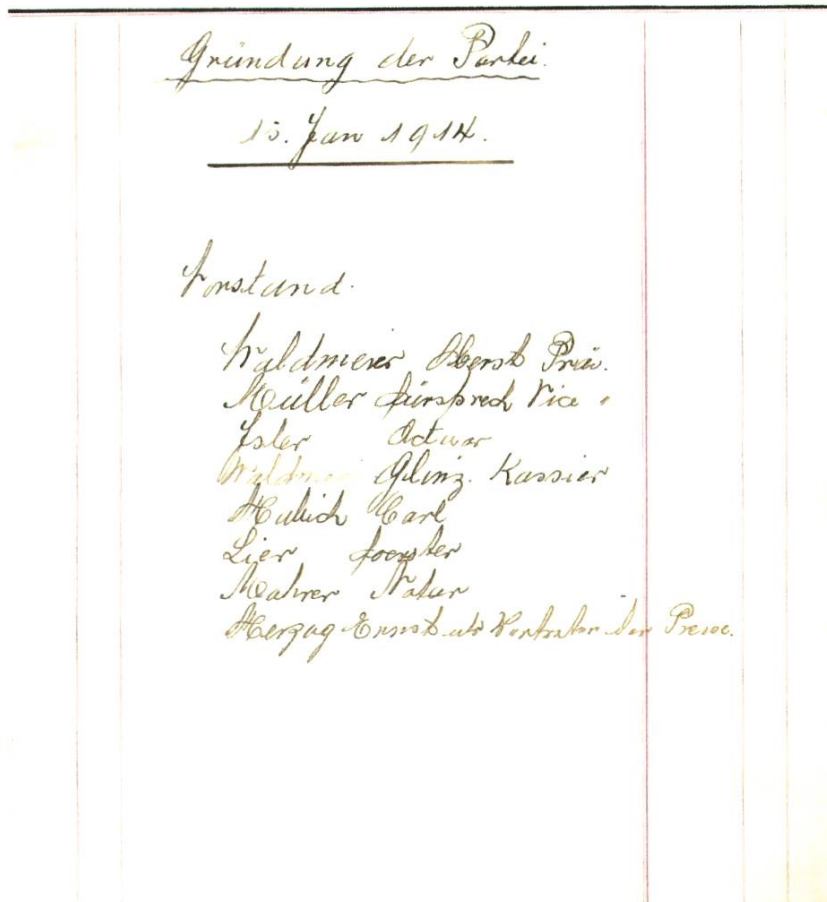 Gründung der Partei.
15. Jan 1914.
Vorstand.
Waldmeier Präs.
Müller Fürsprech Vice "
Isler Actuar
Waldmeier Kassier
Carl
Lier Foerster
Mahrer Notar
Herzog Ernst als Vertreter der Presse.